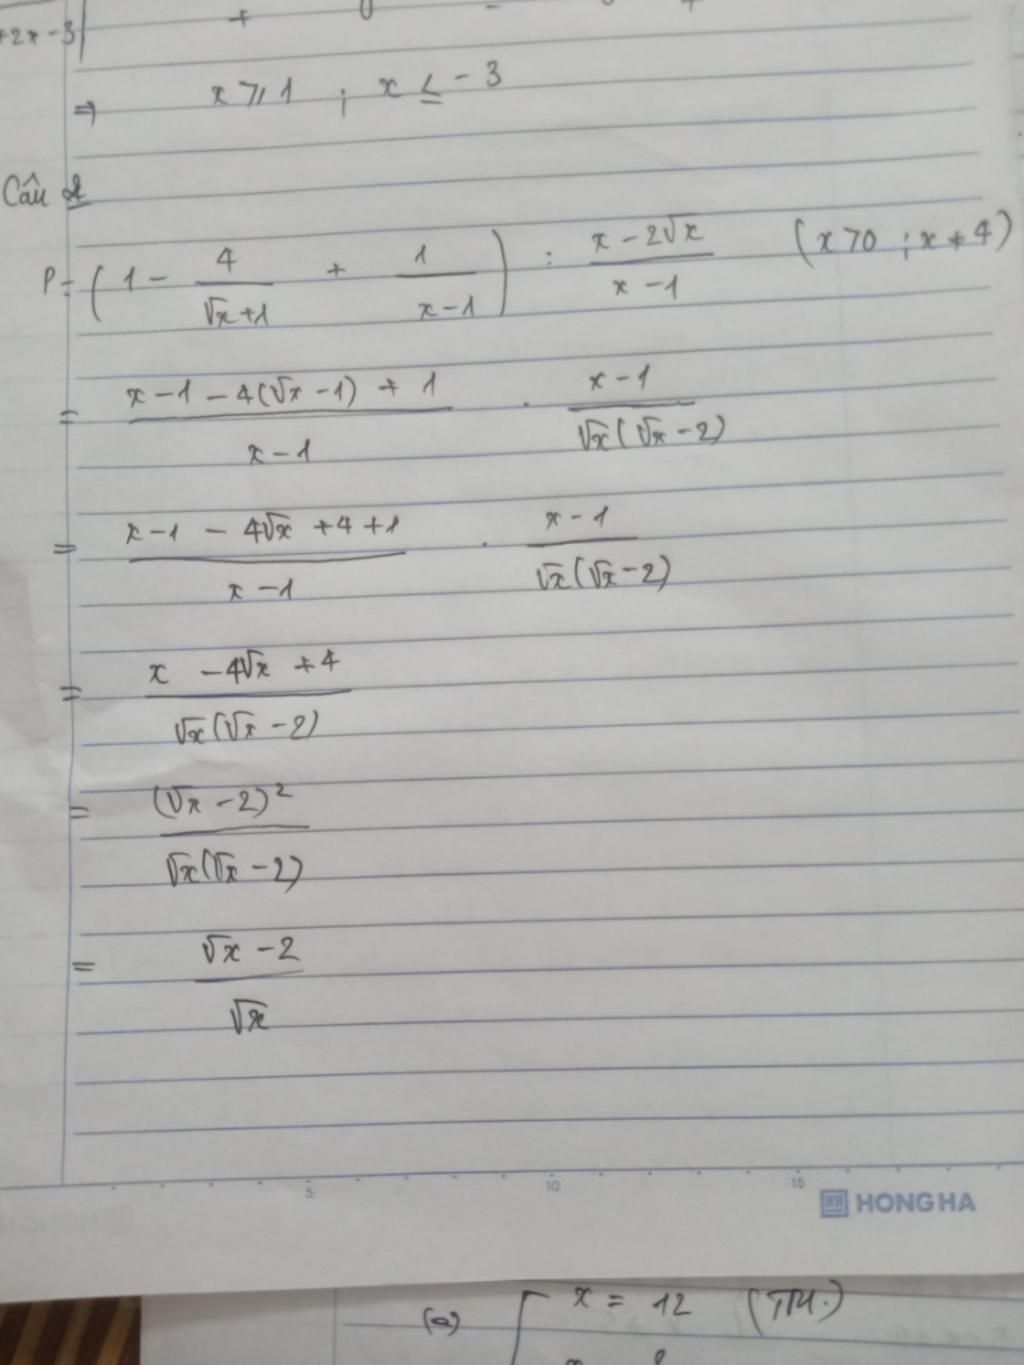 +2x-3
⇒ x ⩾ 1 ; x ≤ -3
Câu 2
P = (1 - 4/(√x+1) + 1/(x-1)) : (x-2√x)/(x-1) (x>0 ; x≠4)
= (x-1-4(√x-1)+1)/(x-1) . (x-1)/(√x(√x-2))
= (x-1-4√x+4+1)/(x-1) . (x-1)/(√x(√x-2))
= (x-4√x+4)/(√x(√x-2))
= (√x-2)²/(√x(√x-2))
= (√x-2)/√x
5 10 15
HONG HA
x = 12 (TM.)